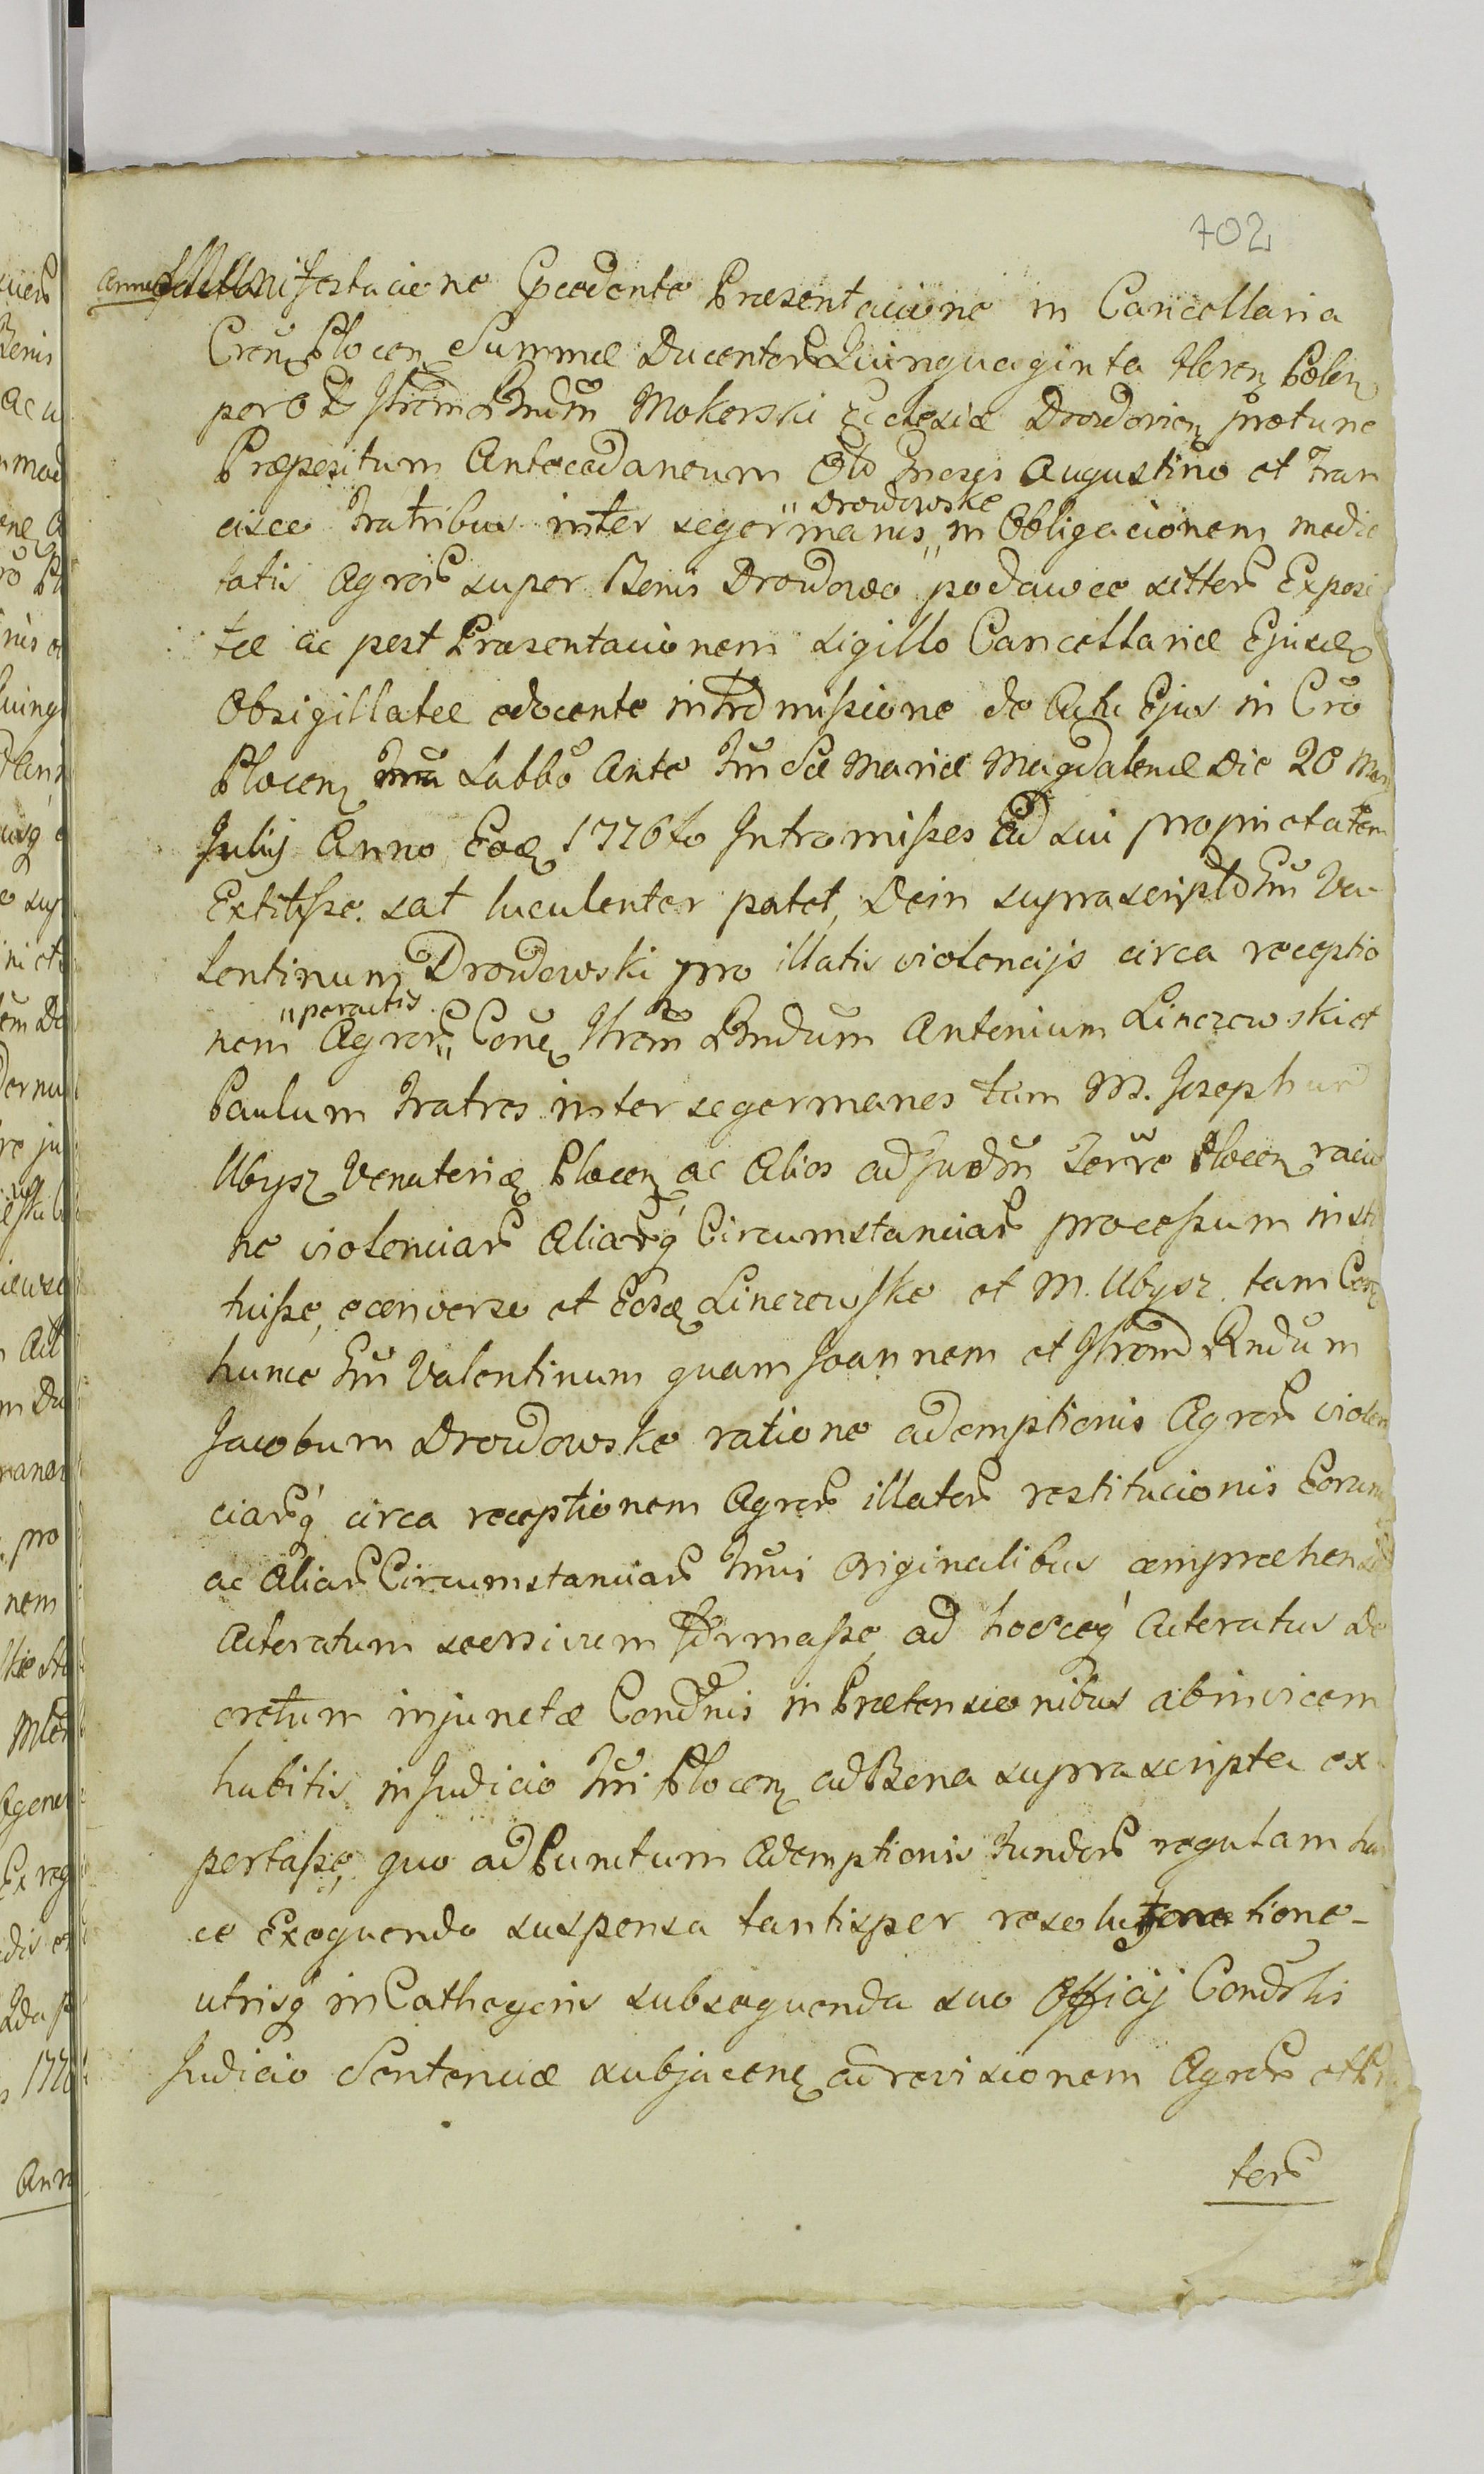 702
Manifestacione Praecedente Praesentacione in Cancellaria
Cren Plocen Summae Ducentor̃ Quinquaginta floren Polon
per Illrem Rndum Mokorski Ecclesiae Drozdovien protunc
Praepositum Antecedaneum Gso Augustino et Fran
"Drozdowskie
cisco Fratribus inter segermanis" in Obligacionem medie
tatis Agror̃ super Bonis Drozdowo podawce litter̃ Exposi
tae ac post Praesentacionem sigillo Cancellariae Ejusd
Obsigillatae edocente intromissione de Actu Ejus in Cro
Plocen Sabbo Ante Fm Sae Mariae Magdalenae Die 20 Men
Julij Anno Eod 1776to Intromissos Ad sui proprietatem
Extitisse. sat luculenter patet, Dein suprascriptõ Gm Va-
lentinum Drozdowski pro illatis violencijs circa receptio
"peractis
nem Agror̃" Conẽ Illrem Rndum Antonium Linczewski et
Paulum Fratres inter segermanos tum M. Josephum
Ubysz Venatorid Plocen ac Alios ad Judm Terre Plocen racio
ne violenciar̃ Aliar̃q Circumstanciar̃ processum insti
tuisse, econverso et Eosd Linczewskie et M. Ubysz. tam Con
hunce Gm Valentinum quam Joannem et Illrem Rndum
Jacobum Drozdowskie ratione ademptionis Agror̃ violen
ciar̃q circa receptionem Agror̃ illator̃ restitucionis Eorum
ac Aliar̃ Circumstanciar̃ Originalibus compraehen
Actoratum formasse, ad hosceq Actoratus De
cretum injunctae Condnis in Praetensionibus abinvicem
habitis in Judicio Plocen ad Bona suprascripta ex
portasse, quo ad Punctum Ademptionis Fundor̃ regulam
ce Exequendo suspensa tantisper resolutione-
utrisq in Cathegoris subsequenda suo Officij Condsli
Judicio Sentenciae subjacen ad revisionem Agror̃ et
tor̃